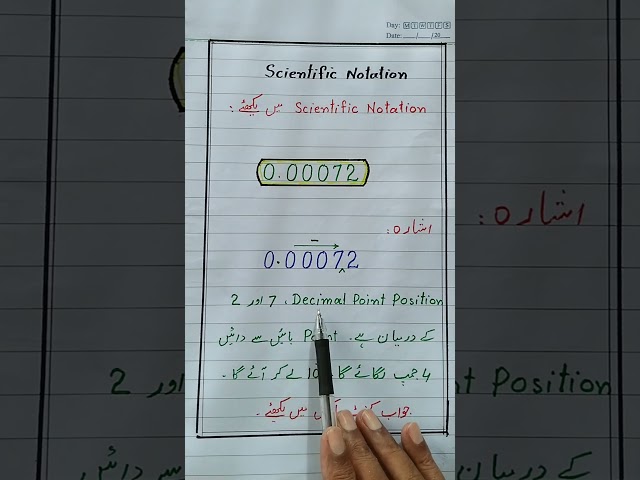 Day: M T W T F S
Date: __/__/20__
Scientific Notation
Scientific Notation میں لکھئے :
0.00072
اشارہ :
−
0.00072
Decimal Point Position ، 7 اور 2
کے درمیان ہے۔ Point بائیں سے دائیں
4 جمپ لگائے گا۔ 10 لے کر آئے گا۔
جواب میں لکھئے۔
اشارہ :
اور 2
Point Position
سے دائیں